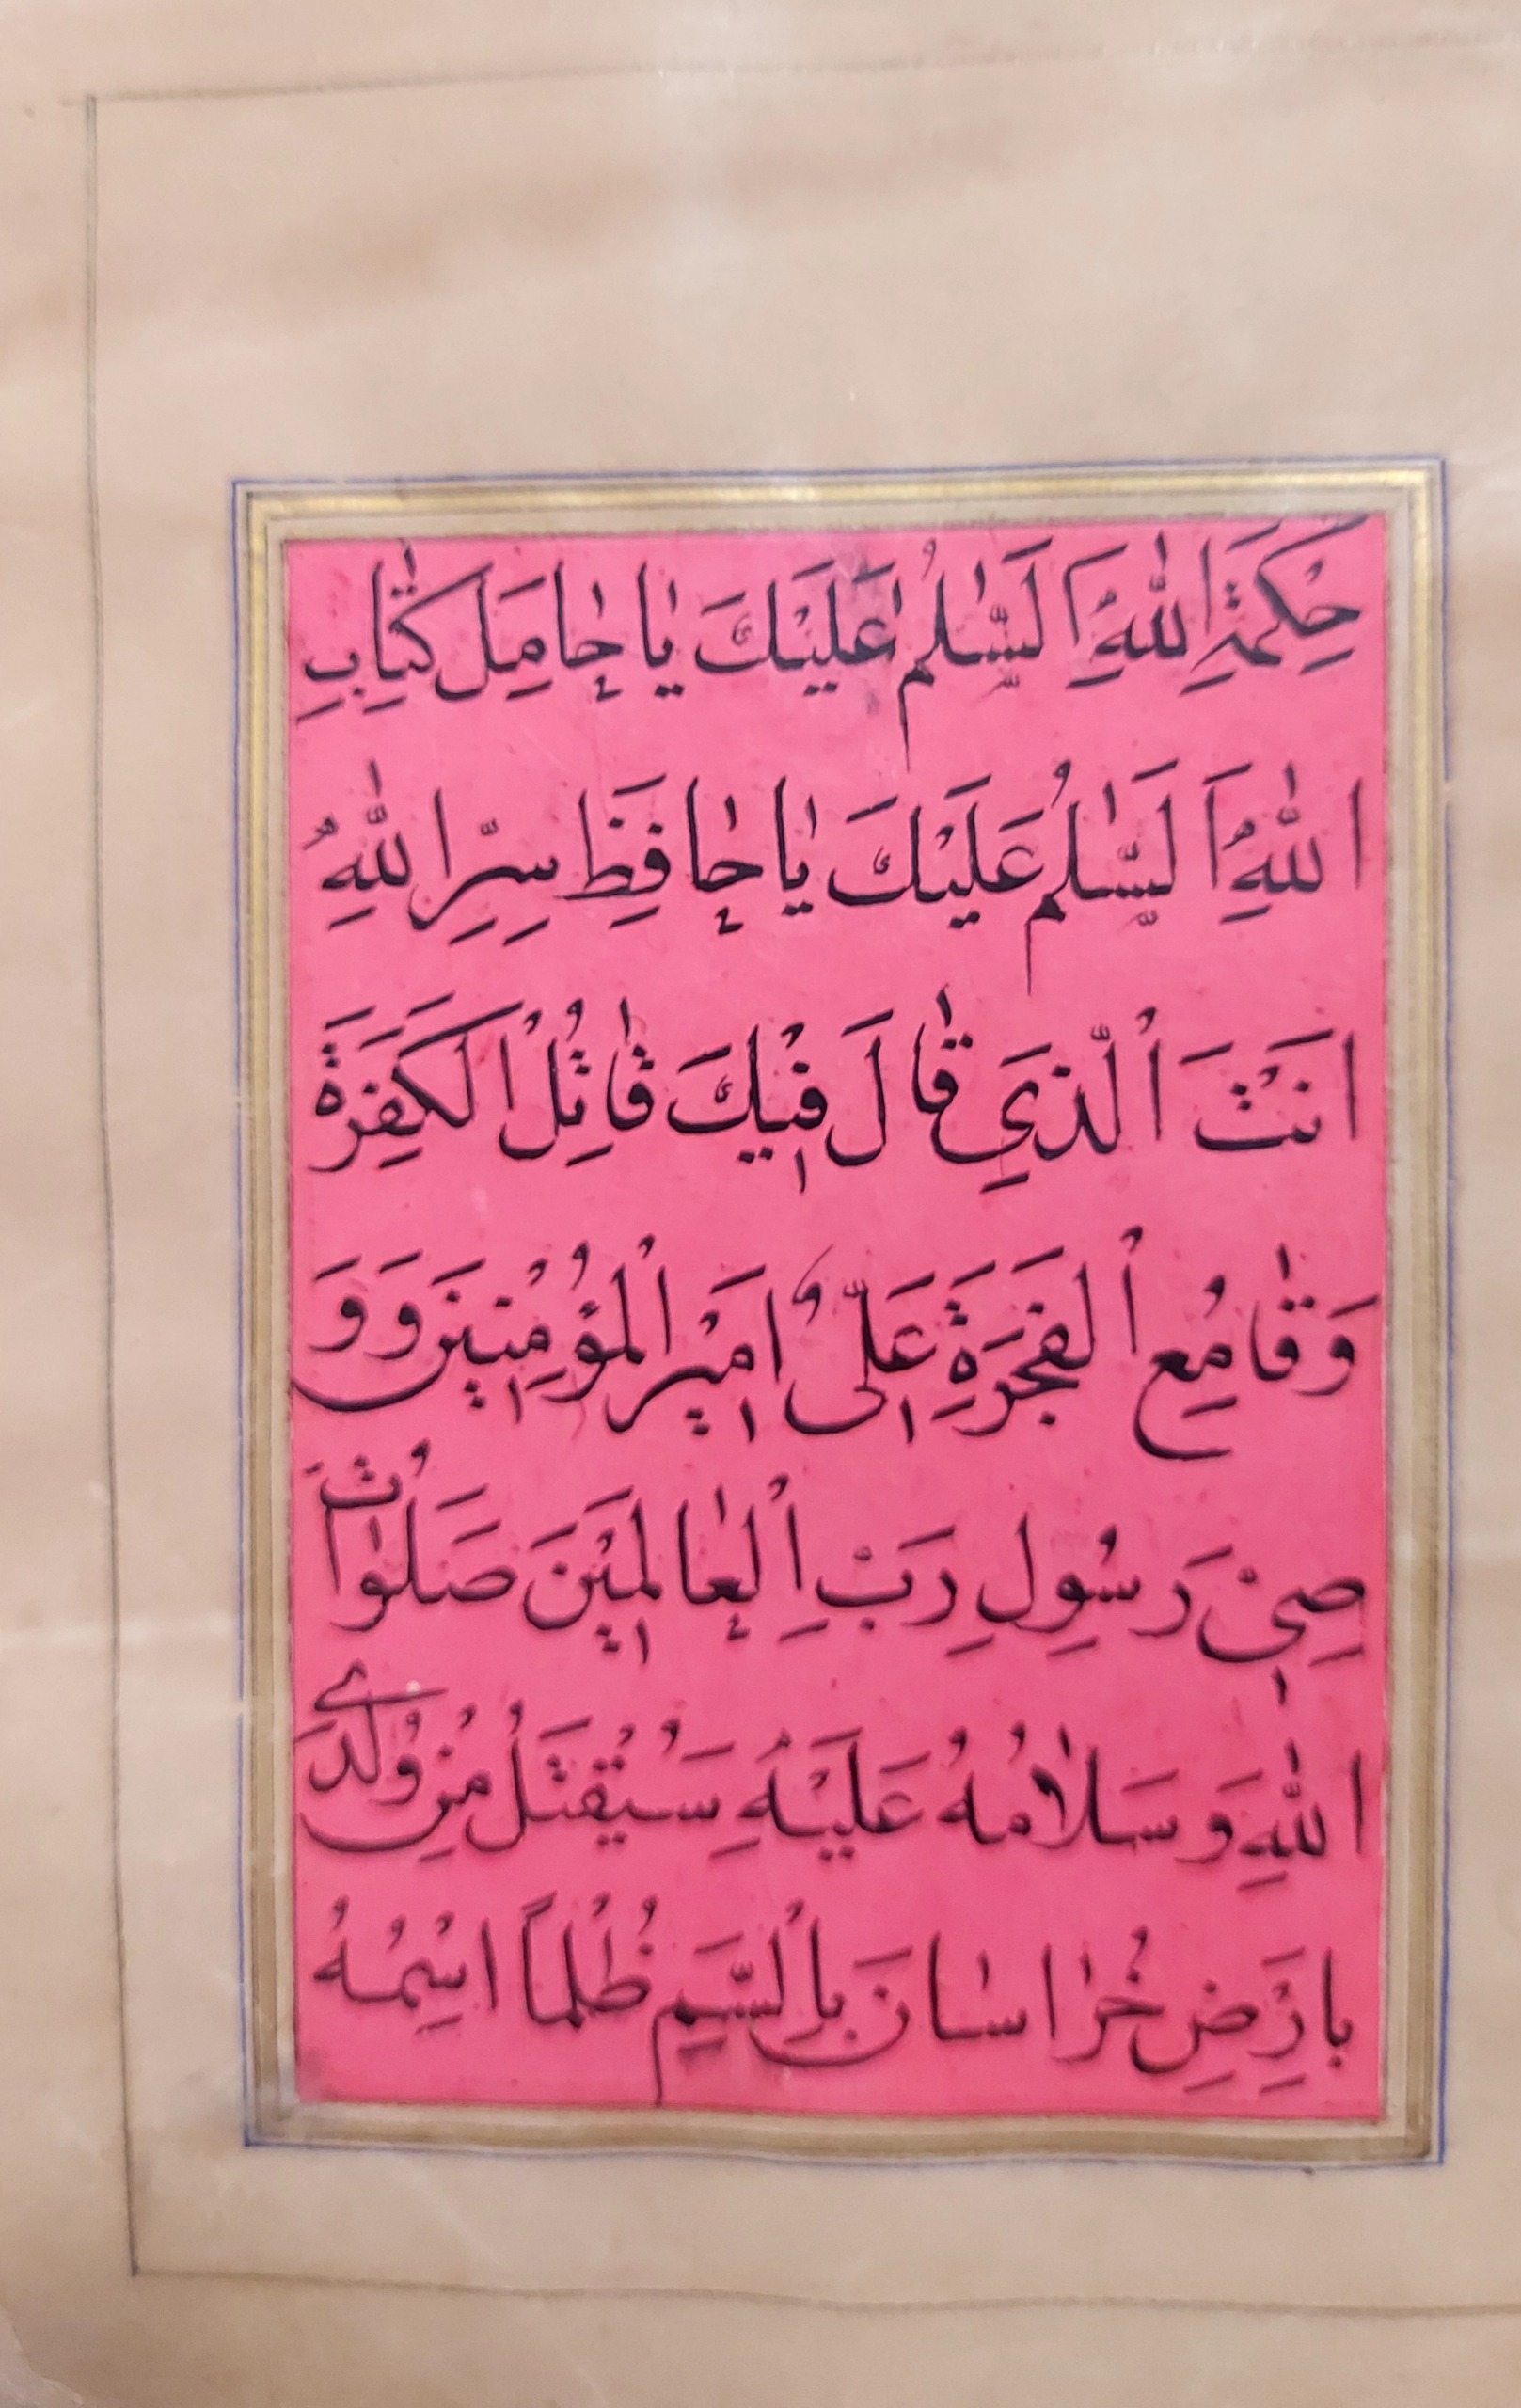 حِكْمَةِ اللّٰهِ اَلسَّلٰمُ عَلَيْكَ يٰا حٰامِلَ كِتٰابِ
اللّٰهِ اَلسَّلٰمُ عَلَيْكَ يٰا حٰافِظَ سِرِّ اللّٰهِ
اَنْتَ الَّذي قٰالَ فيْكَ قٰاتِلُ الْكَفَرَةِ
وَقٰامِعُ الْفَجَرَةِ عَلِىٌّ اَميْرُ الْمُؤْمِنيْنَ وَوَ
صِىْ رَسُولِ رَبِّ الْعٰالَميْنَ صَلَوٰاتُ
اللّٰهِ وَسَلٰامُهُ عَلَيْهِ سَيُقْتَلُ مِنْ وُلْدي
بِاَرْضِ خُرٰاسٰانَ بِالْسَّمِ ظُلْماً اِسْمُهُ